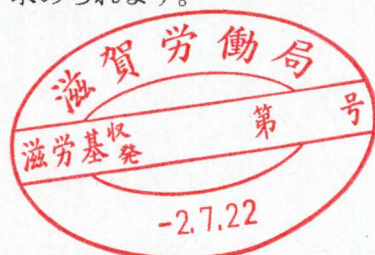 められます。
滋賀労働局
滋労基収発 第 号
-2.7.22